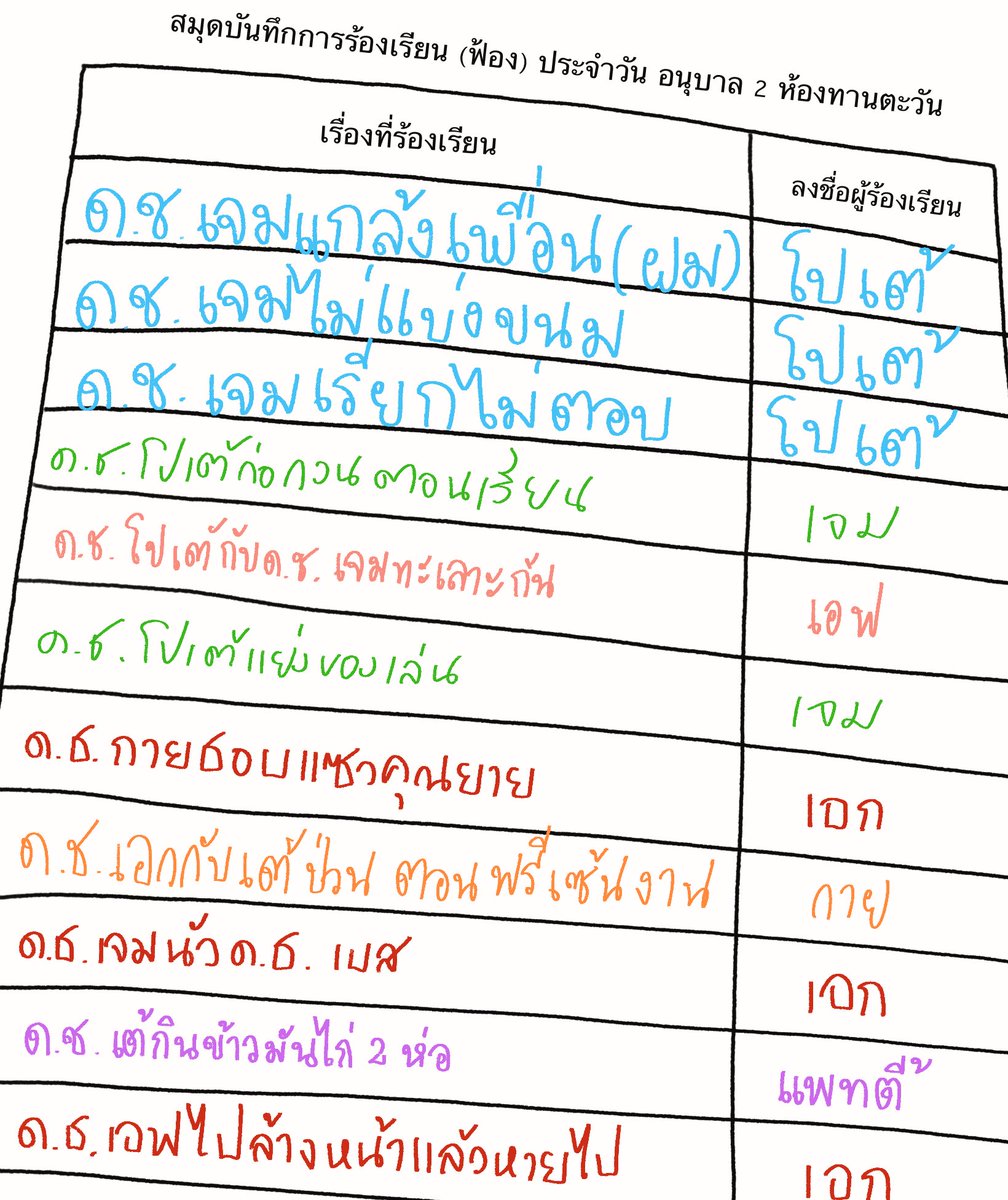 สมุดบันทึกการร้องเรียน (ฟ้อง) ประจำวัน อนุบาล 2 ห้องทานตะวัน
เรื่องที่ร้องเรียน ลงชื่อผู้ร้องเรียน
ด.ช.เจมแกล้งเพื่อน(ผม) โปเต้
ด.ช.เจมไม่แบ่งขนม โปเต้
ด.ช.เจมเรียกไม่ตอบ โปเต้
ด.ช.โปเต้ก่อกวนตอนเรียน เจม
ด.ช.โปเต้กับด.ช.เจมทะเลาะกัน เอฟ
ด.ช.โปเต้แย่งของเล่น เจม
ด.ช.กายชอบแซวคุณยาย เอก
ด.ช.เอกกับเต้ป่วน ตอนพรีเซ้นงาน กาย
ด.ช.เจมนัวด.ช. เบส เอก
ด.ช.เต้กินข้าวมันไก่ 2 ห่อ แพทตี้
ด.ช.เอฟไปล้างหน้าแล้วหายไป เอก